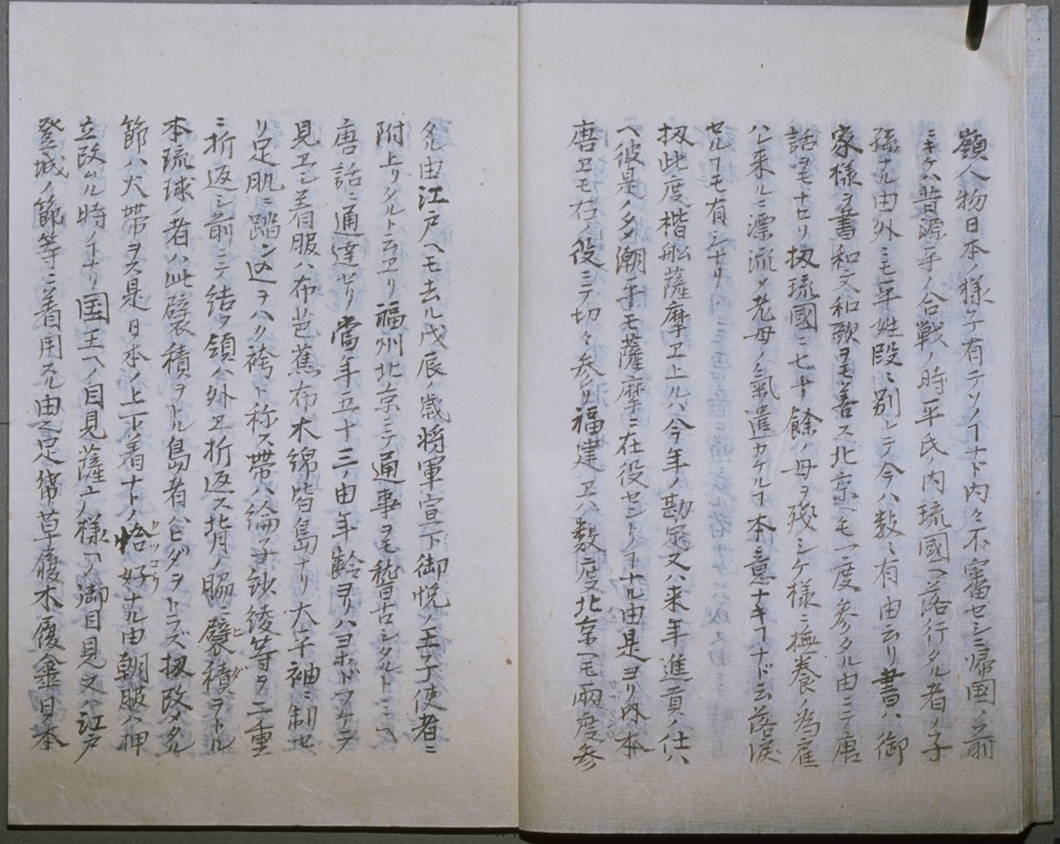 嶺人物日本ノ様子有テソノヿナド内々不審セシニ帰国ノ前
ニキケハ昔源平ノ合戦ノ時平氏ノ内琉國ヘ落行タル者ノ子
孫ナル由外ニモ平姓段々別レテ今ハ数々有由云リ書ハ御
家様ヲ書和文和歌ヲモ善ス北京ヘモ一度参タル由ニテ唐
話ヲモナセリ扨琉國ニ七十餘ノ母ヲ残シケ様ニ極養ノ為雇
ハレ来ルニ漂流メ老母ノ氣遣カケルヿ本意ナキヿナド云落涙
セルヿモ有シナリ
扨此度楷船薩摩ヱ上ルハ今年ノ勘定又ハ来年進貢ノ仕ハ
ヘ彼是ノタメ潮平モ薩摩ニ在役セントノヿナル由是ヨリ内本
唐ヱモ右ノ役ニテ切々参リ福建ヱハ数度北京ヘモ兩度参
タル由江戸ヘモ去ル戊辰ノ歳将軍宣下御悦ノ王子使者ニ
附上リタルト云ヱリ福州北京ニテ通事ヲモ稽古シタルトミヘ
唐話ニ通達セリ當年五十三ノ由年齢ヨリハヨホドフケテ
見ヱシ着服ハ布芭蕉布木綿皆島ナリ大平袖ニ制セ
リ足肌ニ踏ン込ヲハク袴ト称ス帯ハ綸子紗綾等ヲ二重
ニ折返シ前ニテ結フ領ハ外ヱ折返ス背ノ脇ニ襞積ヲトル
本琉球ノ者ハ此襞積ヲトル島者ハヒダヲトラズ扨改タル
節ハ大帯ヲス是日本ノ上下着ナトノ恰好ナル由朝服ハ押
立改ル時ノヿナリ国王ヘノ目見薩上ノ様ヘノ御目見又ハ江戸
登城ノ節等ニ着用スル由之足帯草履木履傘日本